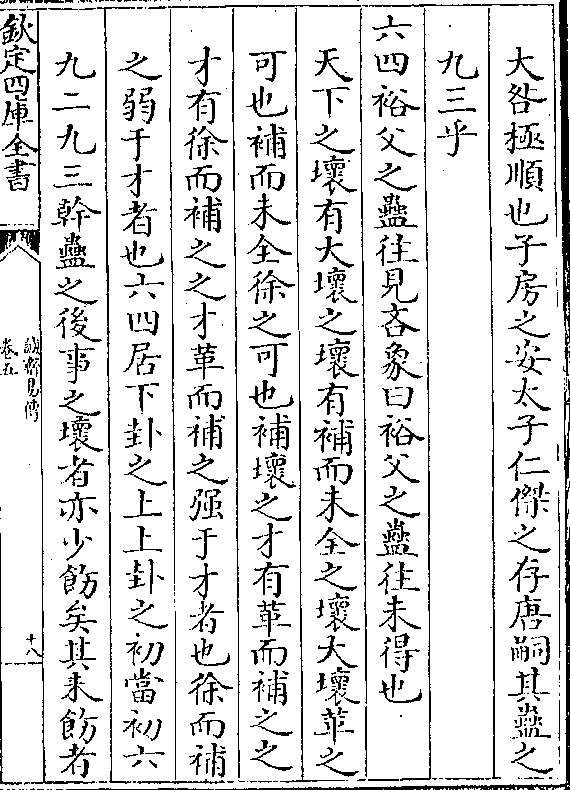 大咎極順也子房之安太子仁傑之存唐嗣其蠱之
九三乎
六四裕父之蠱往見吝象曰裕父之蠱往未得也
天下之壞有大壞之壞有補而未全之壞大壞革之
可也補而未全徐之可也補壞之才有革而補之之
才有徐而補之之才革而補之强于才者也徐而補
之弱于才者也六四居下卦之上上卦之初當初六
九二九三幹蠱之後事之壞者亦少飭矣其未飭者
欽定四庫全書
誠齋易傳
卷五
十八